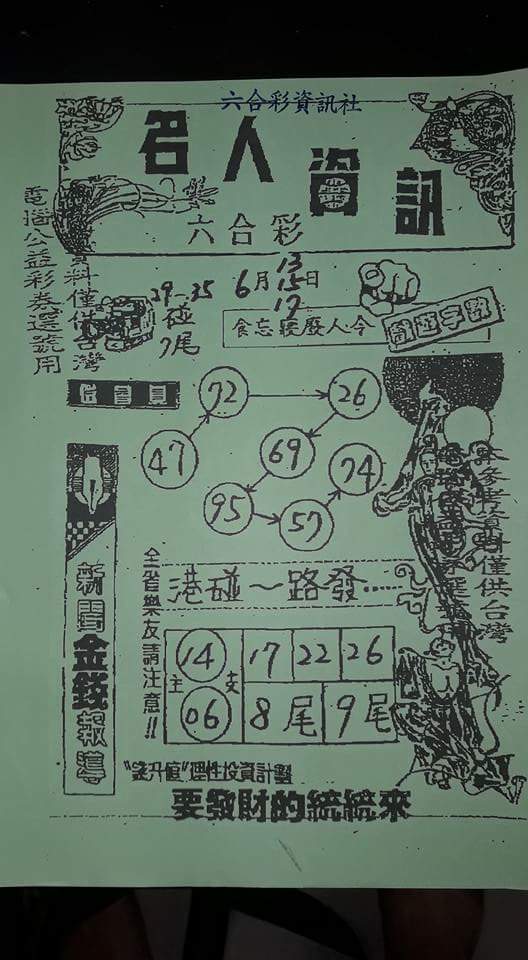 六合彩資訊社
名人資訊
六合彩
電腦公益彩券選號用
資料僅供台灣
29 35
碰
7尾
6月
13
15日
17
食忘寢廢人令
戲遊字數
72
26
47
69
74
95
57
新聞金錢報導
全省樂友請注意!!
港碰一路發.....
14
主
06
支
17
22
26
8尾
9尾
本參考資料僅供台灣
理性投資計劃
要發財的統統來